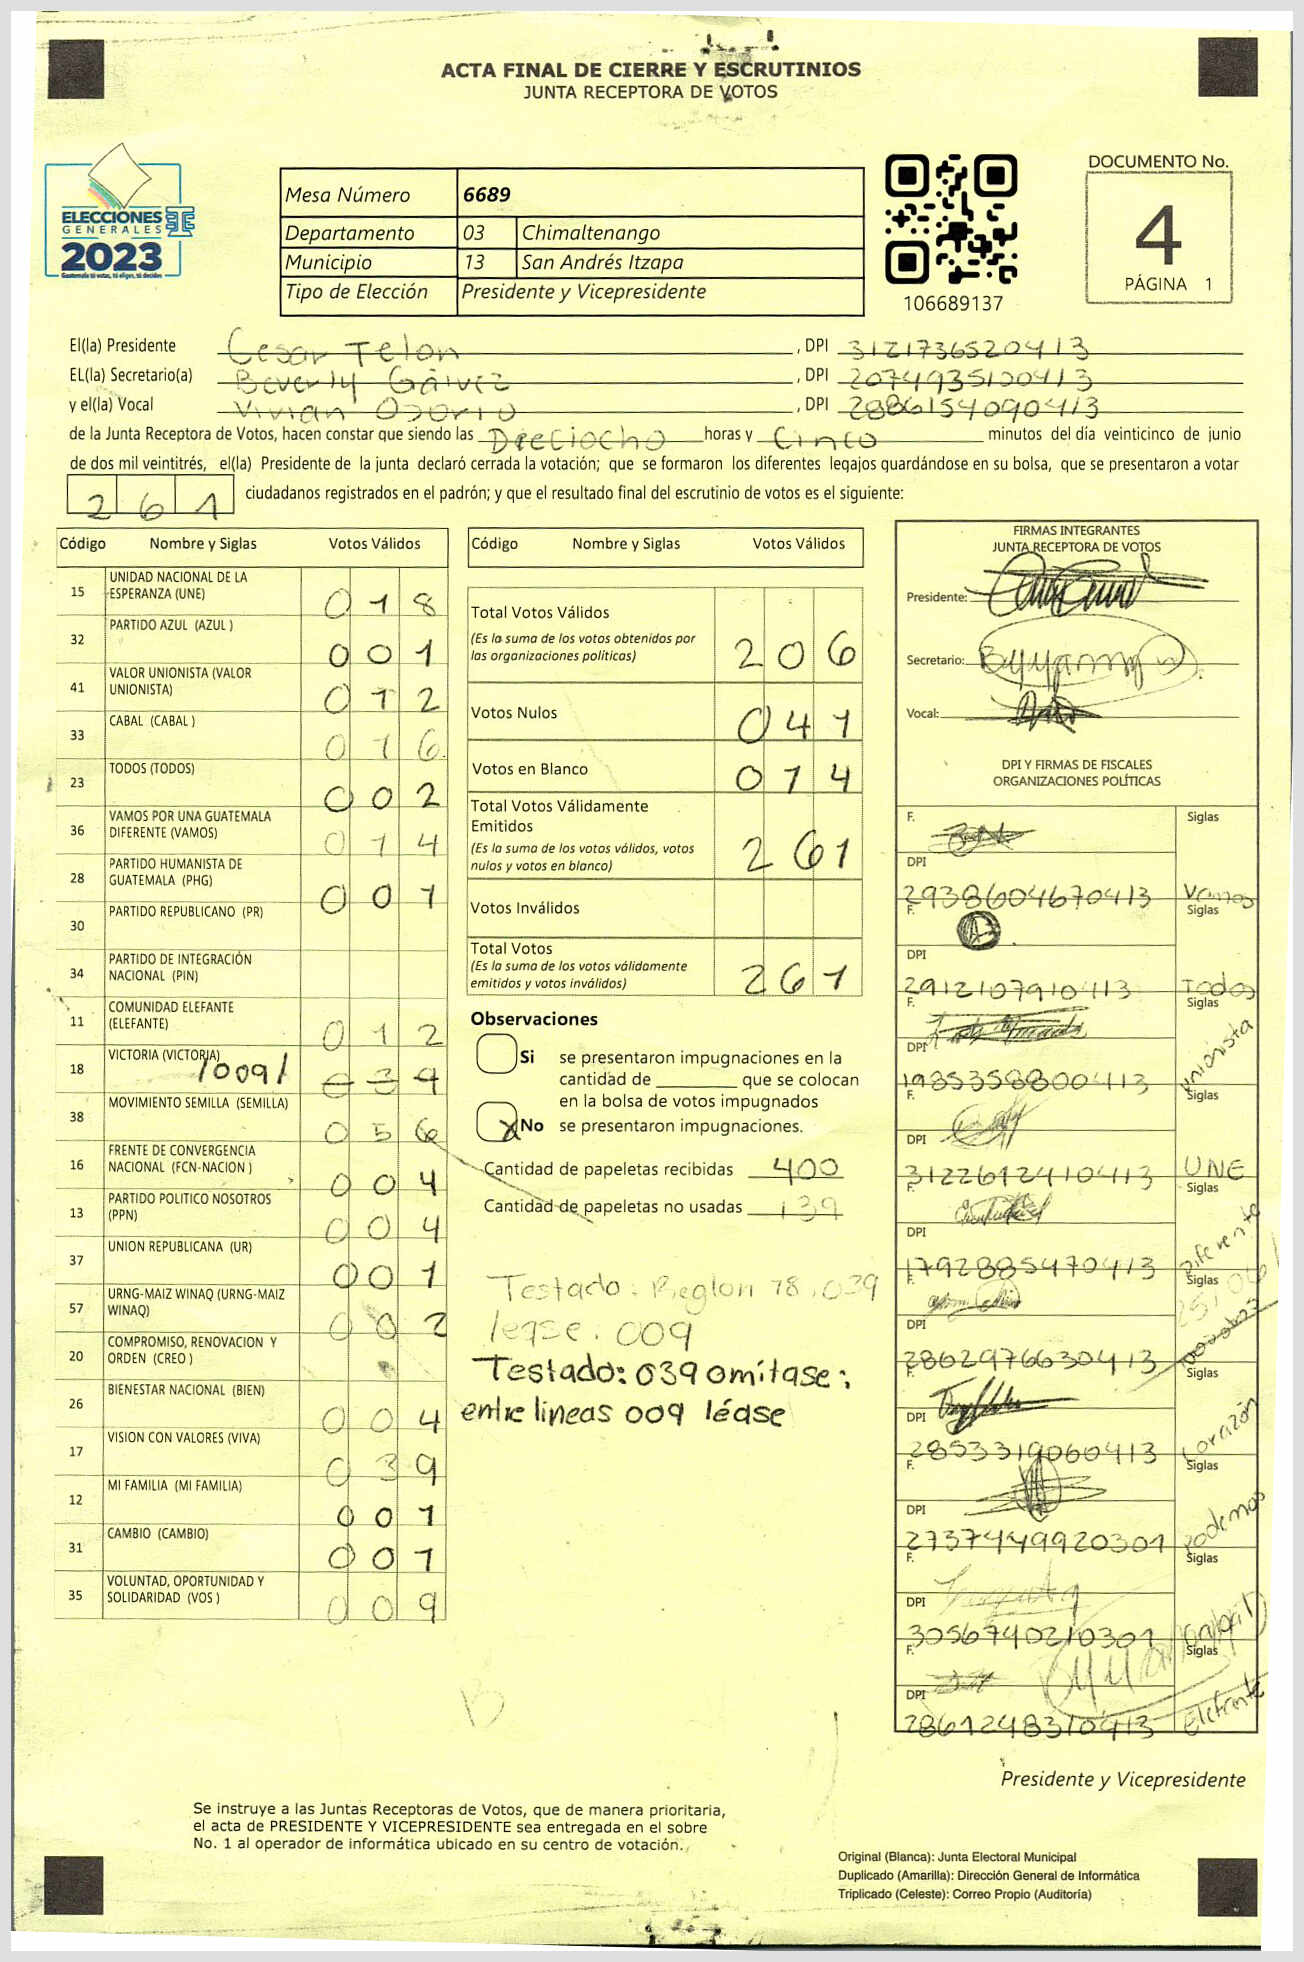 ACTA FINAL DE CIERRE Y ESCRUTINIOS
JUNTA RECEPTORA DE VOTOS
ELECCIONES
GENERALES
2023
Guatemala tú votas, tú eliges, tú decides
Mesa Número 6689
Departamento 03 Chimaltenango
Municipio 13 San Andrés Itzapa
Tipo de Elección Presidente y Vicepresidente
106689137
DOCUMENTO No.
4
PÁGINA 1
El(la) Presidente Cesar Telon, DPI 3121736520413
EL(la) Secretario(a) Beverly Gálvez, DPI 2074935100413
y el(la) Vocal Vivian Osorio, DPI 2886154090413
de la Junta Receptora de Votos, hacen constar que siendo las Dieciocho horas y Cinco minutos del día veinticinco de junio
de dos mil veintitrés, el(la) Presidente de la junta declaró cerrada la votación; que se formaron los diferentes legajos guardándose en su bolsa, que se presentaron a votar
261 ciudadanos registrados en el padrón; y que el resultado final del escrutinio de votos es el siguiente:
Código Nombre y Siglas Votos Válidos
15 UNIDAD NACIONAL DE LA ESPERANZA (UNE) 018
32 PARTIDO AZUL (AZUL ) 001
41 VALOR UNIONISTA (VALOR UNIONISTA) 012
33 CABAL (CABAL ) 016
23 TODOS (TODOS) 002
36 VAMOS POR UNA GUATEMALA DIFERENTE (VAMOS) 014
28 PARTIDO HUMANISTA DE GUATEMALA (PHG) 001
30 PARTIDO REPUBLICANO (PR)
34 PARTIDO DE INTEGRACIÓN NACIONAL (PIN)
11 COMUNIDAD ELEFANTE (ELEFANTE) 012
18 VICTORIA (VICTORIA) /009/ 039
38 MOVIMIENTO SEMILLA (SEMILLA) 056
16 FRENTE DE CONVERGENCIA NACIONAL (FCN-NACION ) 004
13 PARTIDO POLITICO NOSOTROS (PPN) 004
37 UNION REPUBLICANA (UR) 001
57 URNG-MAIZ WINAQ (URNG-MAIZ WINAQ) 002
20 COMPROMISO, RENOVACION Y ORDEN (CREO )
26 BIENESTAR NACIONAL (BIEN) 004
17 VISION CON VALORES (VIVA) 039
12 MI FAMILIA (MI FAMILIA) 001
31 CAMBIO (CAMBIO) 001
35 VOLUNTAD, OPORTUNIDAD Y SOLIDARIDAD (VOS ) 009
Código Nombre y Siglas Votos Válidos
Total Votos Válidos 206
(Es la suma de los votos obtenidos por
las organizaciones políticas)
Votos Nulos 041
Votos en Blanco 014
Total Votos Válidamente
Emitidos 261
(Es la suma de los votos válidos, votos
nulos y votos en blanco)
Votos Inválidos
Total Votos 261
(Es la suma de los votos válidamente
emitidos y votos inválidos)
Observaciones
Si se presentaron impugnaciones en la
cantidad de ________ que se colocan
en la bolsa de votos impugnados
X No se presentaron impugnaciones.
Cantidad de papeletas recibidas 400
Cantidad de papeletas no usadas 139
Testado: Reglon 18, 039
lease: 009
Testado: 039 omítase:
entre lineas 009 léase
FIRMAS INTEGRANTES
JUNTA RECEPTORA DE VOTOS
Presidente:
Secretario:
Vocal:
DPI Y FIRMAS DE FISCALES
ORGANIZACIONES POLÍTICAS
F. Siglas
DPI
2938604670413 Vamos
F. Siglas
DPI
2912107910413 Todos
F. Siglas
DPI
1985358800413 Unionista
F. Siglas
DPI
3122612410413 UNE
F. Siglas
DPI
1792885470413 Diferente
F. Siglas
DPI
2862976630413
F. Siglas
DPI
2853319060413 Corazón
F. Siglas
DPI
2737449920301 Podemos
F. Siglas
DPI
3056740210301
F. Siglas
DPI
2861248310413 Elefante
Presidente y Vicepresidente
Se instruye a las Juntas Receptoras de Votos, que de manera prioritaria,
el acta de PRESIDENTE Y VICEPRESIDENTE sea entregada en el sobre
No. 1 al operador de informática ubicado en su centro de votación.
Original (Blanca): Junta Electoral Municipal
Duplicado (Amarilla): Dirección General de Informática
Triplicado (Celeste): Correo Propio (Auditoría)